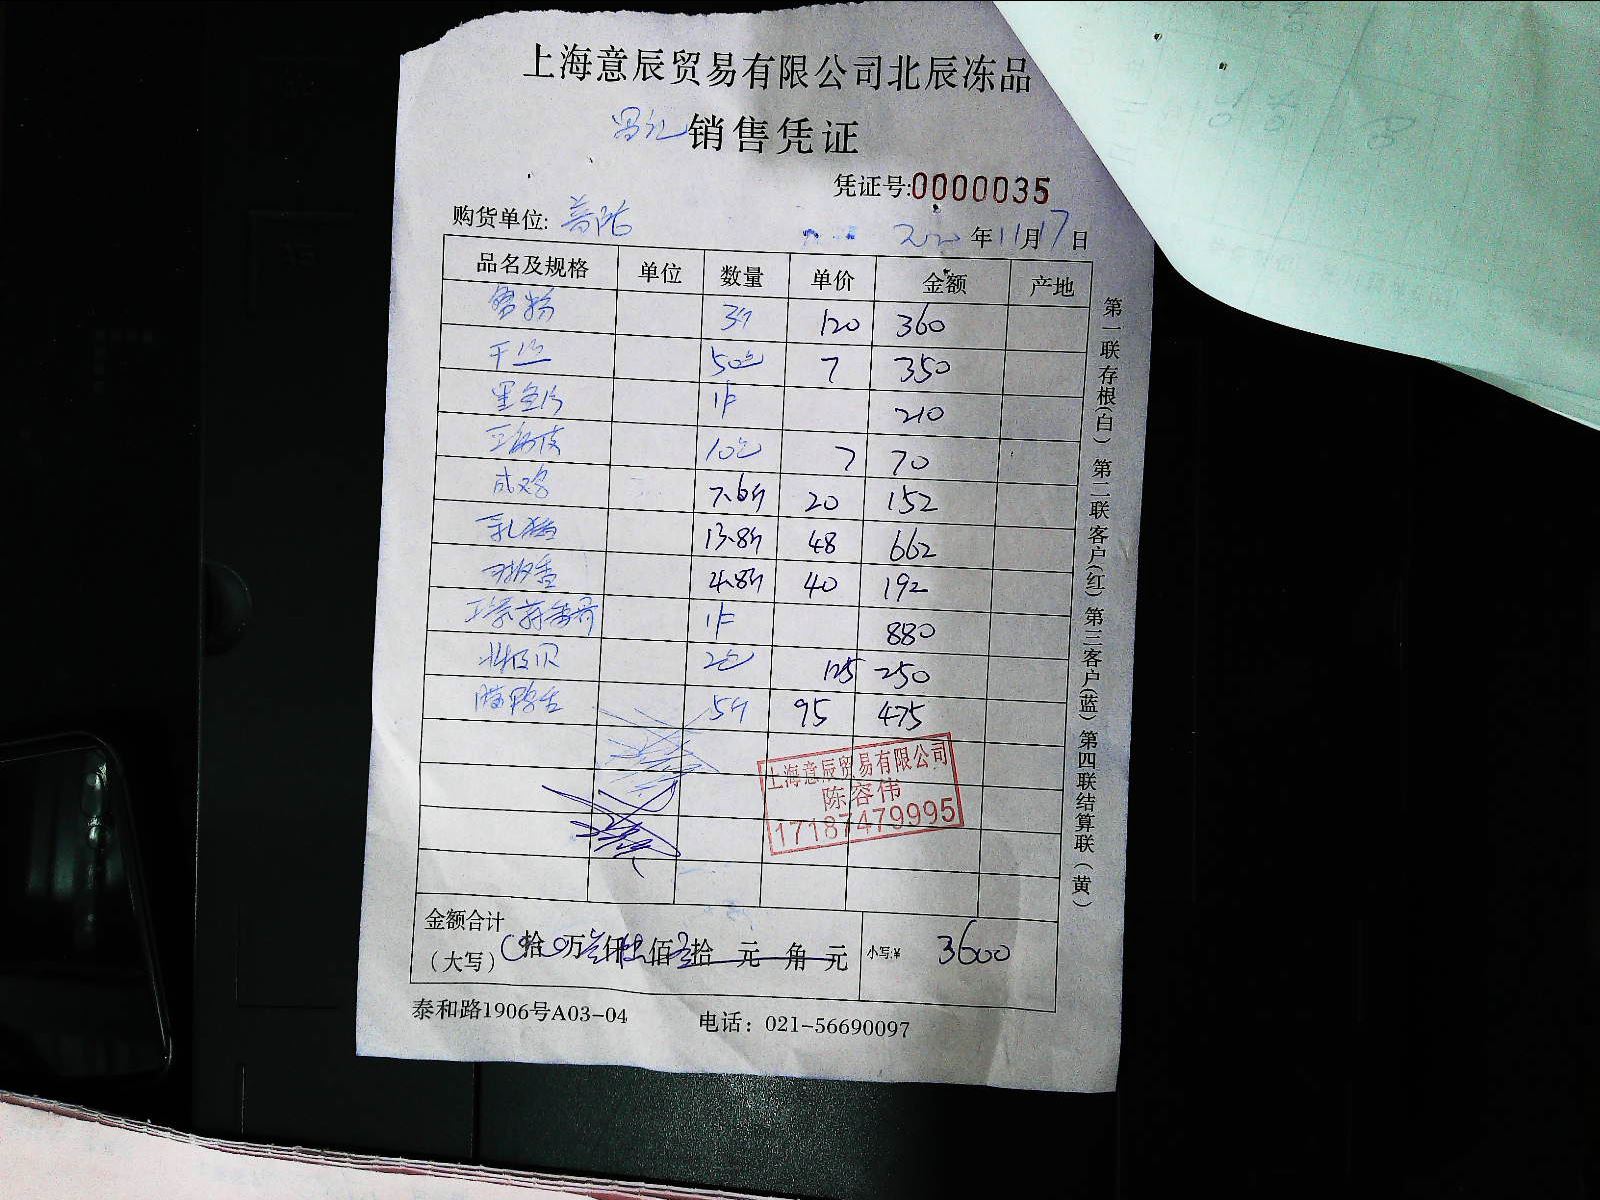 上海意辰贸易有限公司北辰冻品
销售凭证
凭证号:0000035
购货单位: 普陀
年11月17日
品名及规格 单位 数量 单价 金额 产地
3斤 120 360
50包 7 350
黑鱼片 1件 210
10包 7 70
成鸡 7.6斤 20 152
乳鸽 13.8斤 48 662
4.8斤 40 192
1件 880
2包 125 250
腊鸭舌 5斤 95 475
上海意辰贸易有限公司
陈容伟
17187479995
金额合计
(大写) 拾 万 仟 佰 拾 元 角 元 小写:¥ 3600
泰和路1906号A03-04 电话：021-56690097
第一联存根(白) 第二联客户(红) 第三客户(蓝) 第四联结算联(黄)